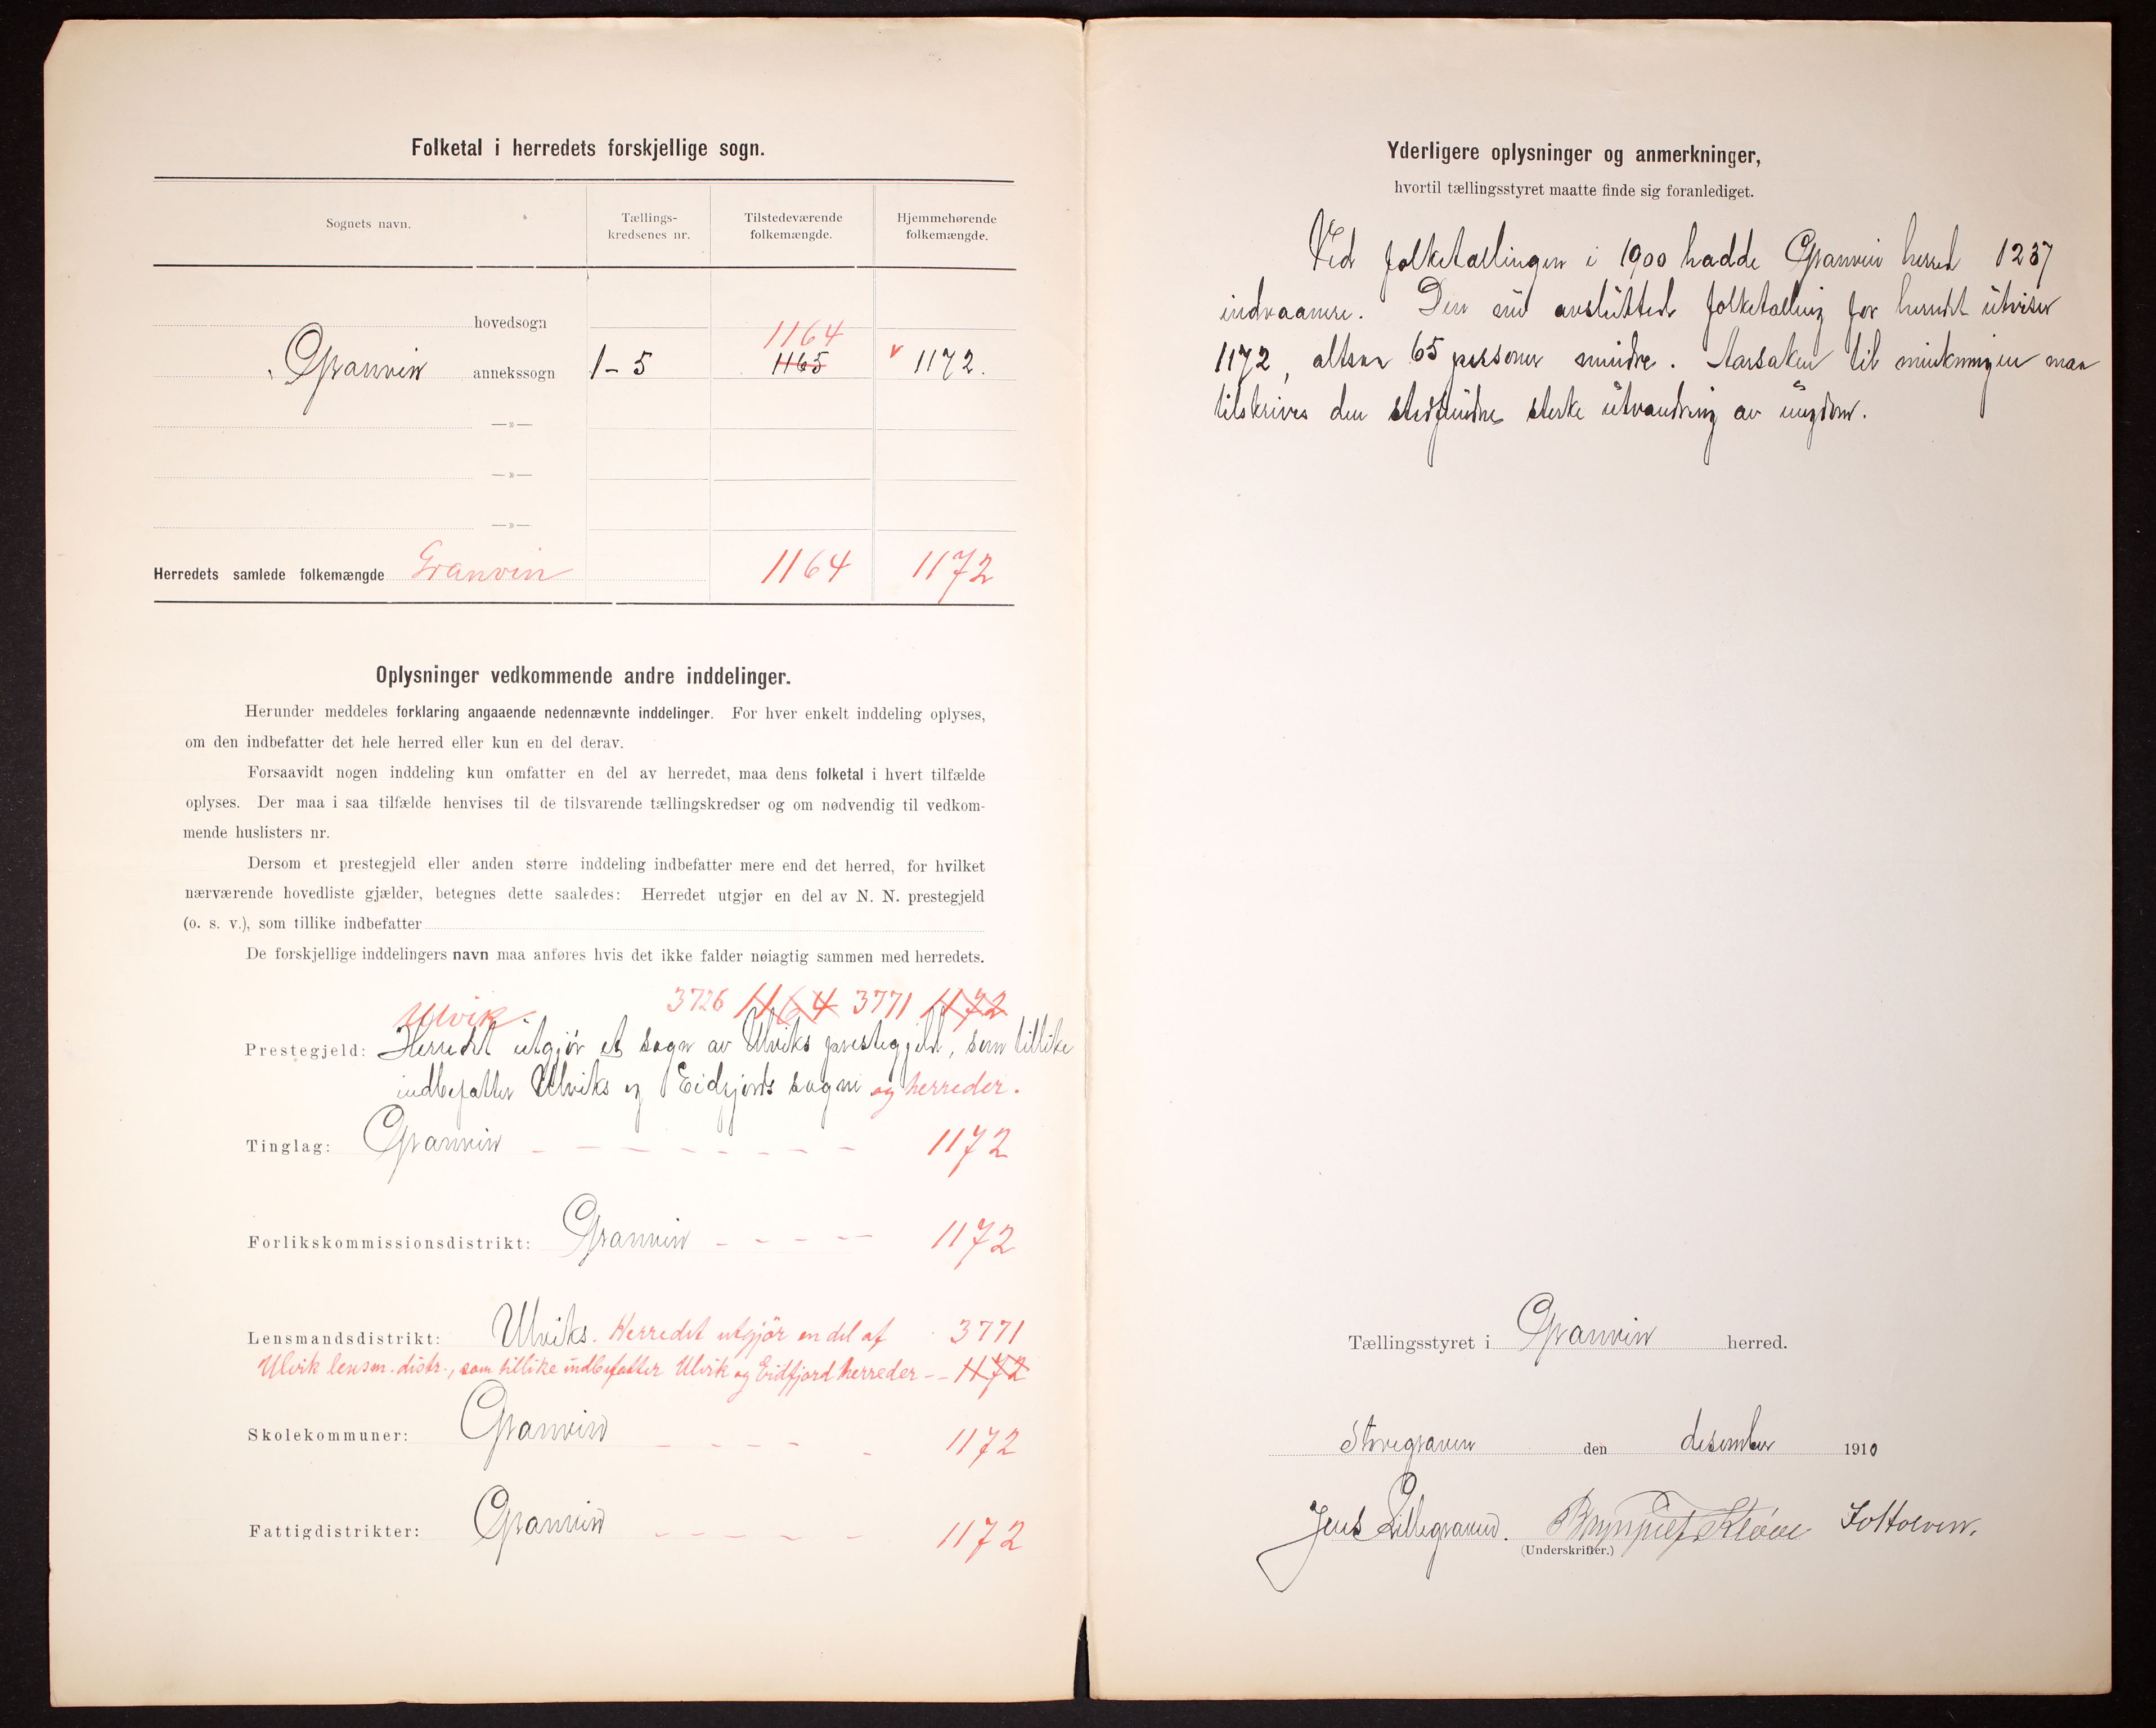 Folketal i herredets forskjellige sogn.
Sognets navn.
Tællings-
kredsenes nr.
Tilstedeværende
folkemængde.
Hjemmehørende
folkemængde.
hovedsogn
1164
Granvin annekssogn 1–5 1165 v 1172.
—»—
—»—
—»—
Herredets samlede folkemængde Granvin 1164 1172
Oplysninger vedkommende andre inddelinger.
Herunder meddeles forklaring angaaende nedennævnte inddelinger. For hver enkelt inddeling oplyses,
om den indbefatter det hele herred eller kun en del derav.
Forsaavidt nogen inddeling kun omfatter en del av herredet, maa dens folketal i hvert tilfælde
oplyses. Der maa i saa tilfælde henvises til de tilsvarende tællingskredser og om nødvendig til vedkom-
mende huslisters nr.
Dersom et prestegjeld eller anden større inddeling indbefatter mere end det herred, for hvilket
nærværende hovedliste gjælder, betegnes dette saaledes: Herredet utgjør en del av N. N. prestegjeld
(o. s. v.), som tillike indbefatter
De forskjellige inddelingers navn maa anføres hvis det ikke falder nøiagtig sammen med herredets.
Ulvik 3726 1164 3771 1172
Prestegjeld: Herredet utgjør et sogn av Ulviks prestegjeld, som tillike
indbefatter Ulviks og Eidfjords sogne og herreder.
Tinglag: Granvin – – – – – – – – 1172
Forlikskommissionsdistrikt: Granvin – – – – – 1172
Lensmandsdistrikt: Ulviks. Herredet utgjör en del af 3771
Ulvik lensm. distr., som tillike indbefatter Ulvik og Eidfjord herreder – – 1172
Skolekommuner: Granvin – – – – – 1172
Fattigdistrikter: Granvin – – – – – 1172
Yderligere oplysninger og anmerkninger,
hvortil tællingsstyret maatte finde sig foranlediget.
Ved folketællingen i 1900 hadde Granvin herred 1237
indvaanere. Den nu avsluttede folketælling for herredet utviser
1172, altsaa 65 personer mindre. Aarsaken til minkningen maa
tilskrives den stedfundne sterke utvandring av ungdom.
Tællingsstyret i Granvin herred.
Storegraven den desember 1910
Jens Lillegraven. Brynjulf Kløve
(Underskrifter.)